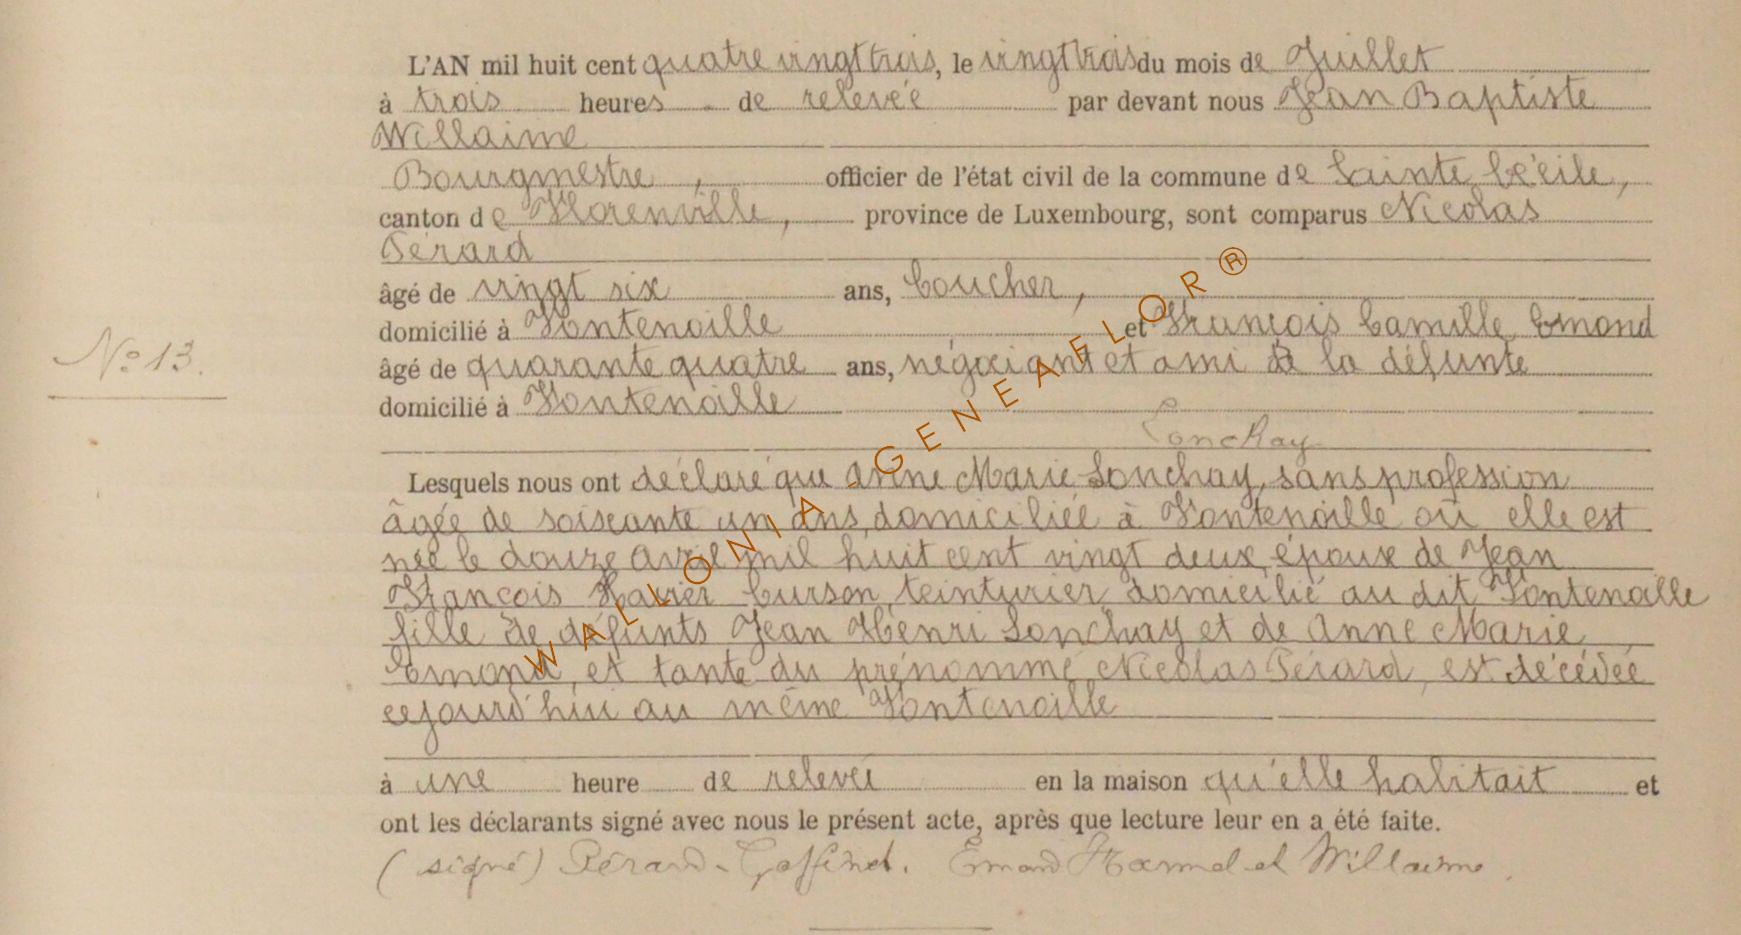 L'AN mil huit cent quatre vingt trois, le vingt trois du mois de Juillet
à trois heures de relevée par devant nous Jean Baptiste
Willaime
Bourgmestre, officier de l'état civil de la commune de Sainte Cécile,
canton de Florenville, province de Luxembourg, sont comparus Nicolas
Pérard
âgé de vingt six ans, Boucher,
domicilié à Fontenoille et François Camille Emond
N° 13.
âgé de quarante quatre ans, négociant et ami de la défunte
domicilié à Fontenoille
Lonchay
Lesquels nous ont déclaré que Anne Marie Lonchay, sans profession
âgée de soixante un ans, domiciliée à Fontenoille où elle est
née le douze avril mil huit cent vingt deux, époux de Jean
François Xavier Curson, teinturier domicilié au dit Fontenoille
fille de défunts Jean Henri Lonchay et de Anne Marie
Emond, et tante du prénommé Nicolas Pérard, est décédée
cejourd'hui au même Fontenoille
à une heure de relevée en la maison qu'elle habitait et
ont les déclarants signé avec nous le présent acte, après que lecture leur en a été faite.
(signé) Pérard-Goffinet. Emond Harmel et Willaime.
WALLONIA - GENEAFLOR®